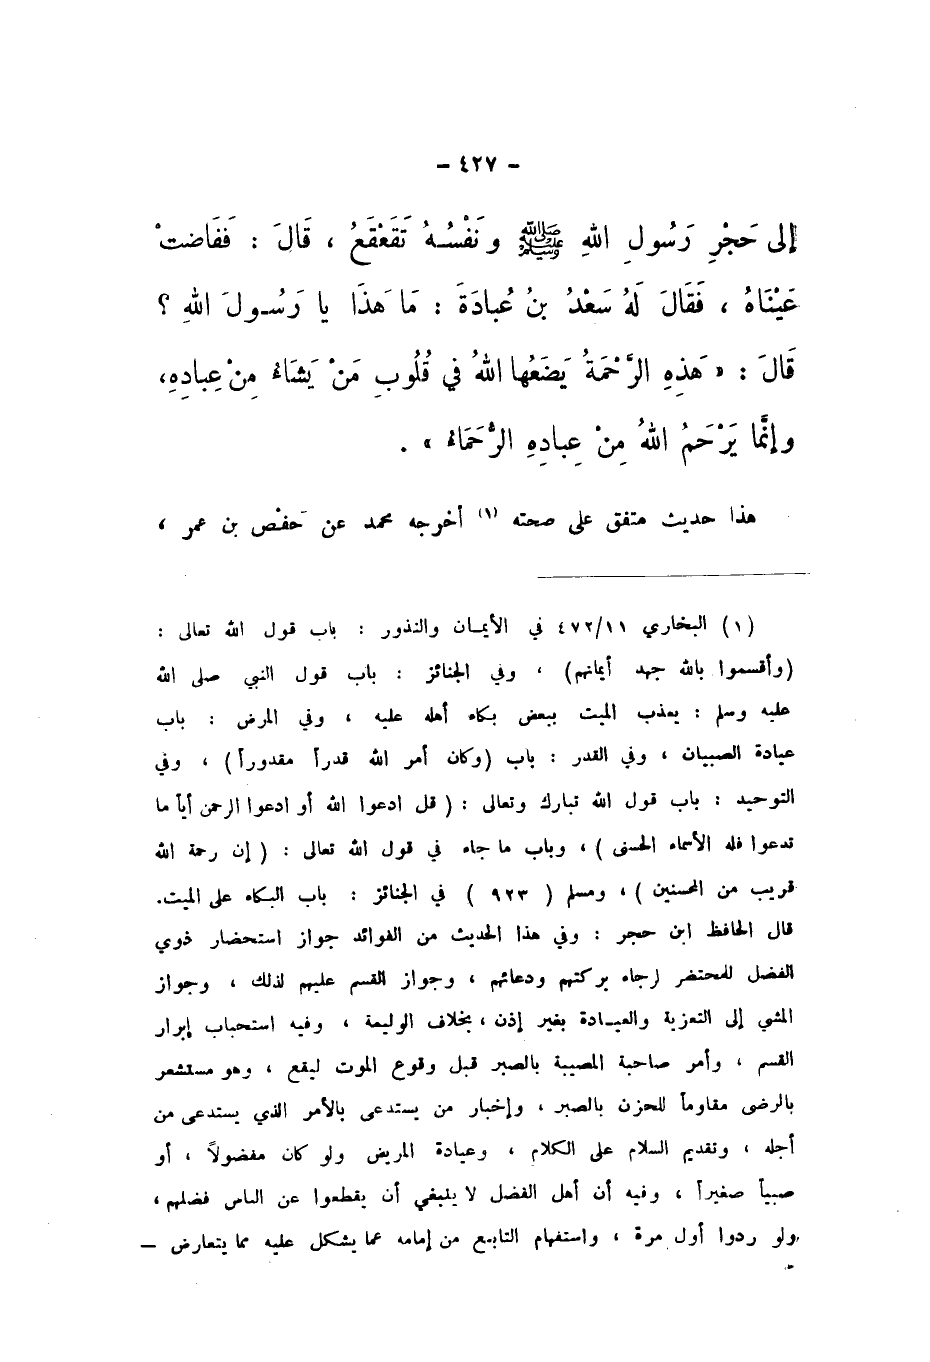 - ٤٢٧ -
إلى حَجْرِ رَسُولِ اللهِ ﷺ ونَفْسُـهُ تَقَعْقَعُ ، قَالَ : فَفَاضتْ
عَيْنَاهُ ، فَقَالَ لَهُ سَعْدُ بنُ عُبادَةَ : مَا هَذَا يا رَسُـولَ اللهِ ؟
قَالَ : « هَذِهِ الرَّحْمَةُ يَضَعُها اللهُ في قُلُوبِ مَنْ يَشَاءُ مِنْ عِبادِهِ،
وإنَّما يَرْحَمُ اللهُ مِنْ عِبادِهِ الرُّحَمَاءُ » .
هذا حديث متفق على صحته (١) أخرجه محمد عن حَفْص بن عمر ،
(١) البخاري ٤٧٢/١١ في الأيمـان والنذور : باب قول الله تعالى :
(وأقسموا بالله جهد أيمانهم) ، وفي الجنائز : باب قول النبي صلى الله
عليه وسلم : يعذب الميت ببعض بكاء أهله عليه ، وفي المرض : باب
عيادة الصبيان ، وفي القدر : باب (وكان أمر الله قدراً مقدوراً) ، وفي
التوحيد : باب قول الله تبارك وتعالى : ( قل ادعوا الله أو ادعوا الرحمن أياً ما
تدعوا فله الأسماء الحسنى ) ، وباب ما جاء في قول الله تعالى : ( إن رحمة الله
قريب من المحسنين ) ، ومسلم ( ٩٢٣ ) في الجنائز : باب البكاء على الميت.
قال الحافظ ابن حجر : وفي هذا الحديث من الفوائد جواز استحضار ذوي
الفضل للمحتضر لرجاء بركتهم ودعائهم ، وجواز القسم عليهم لذلك ، وجواز
المشي إلى التعزية والعيـادة بغير إذن ، بخلاف الوليمة ، وفيه استحباب إبرار
القسم ، وأمر صاحبة المصيبة بالصبر قبل وقوع الموت ليقع ، وهو مستشعر
بالرضى مقاوماً للحزن بالصبر ، وإخبار من يستدعى بالأمر الذي يستدعى من
أجله ، وتقديم السلام على الكلام ، وعيادة المريض ولو كان مفضولاً ، أو
صبياً صغيراً ، وفيه أن أهل الفضل لا ينبغي أن يقطعوا عن الناس فضلهم ،
ولو ردوا أول مرة ، واستفهام التابع من إمامه عما يشكل عليه مما يتعارض —